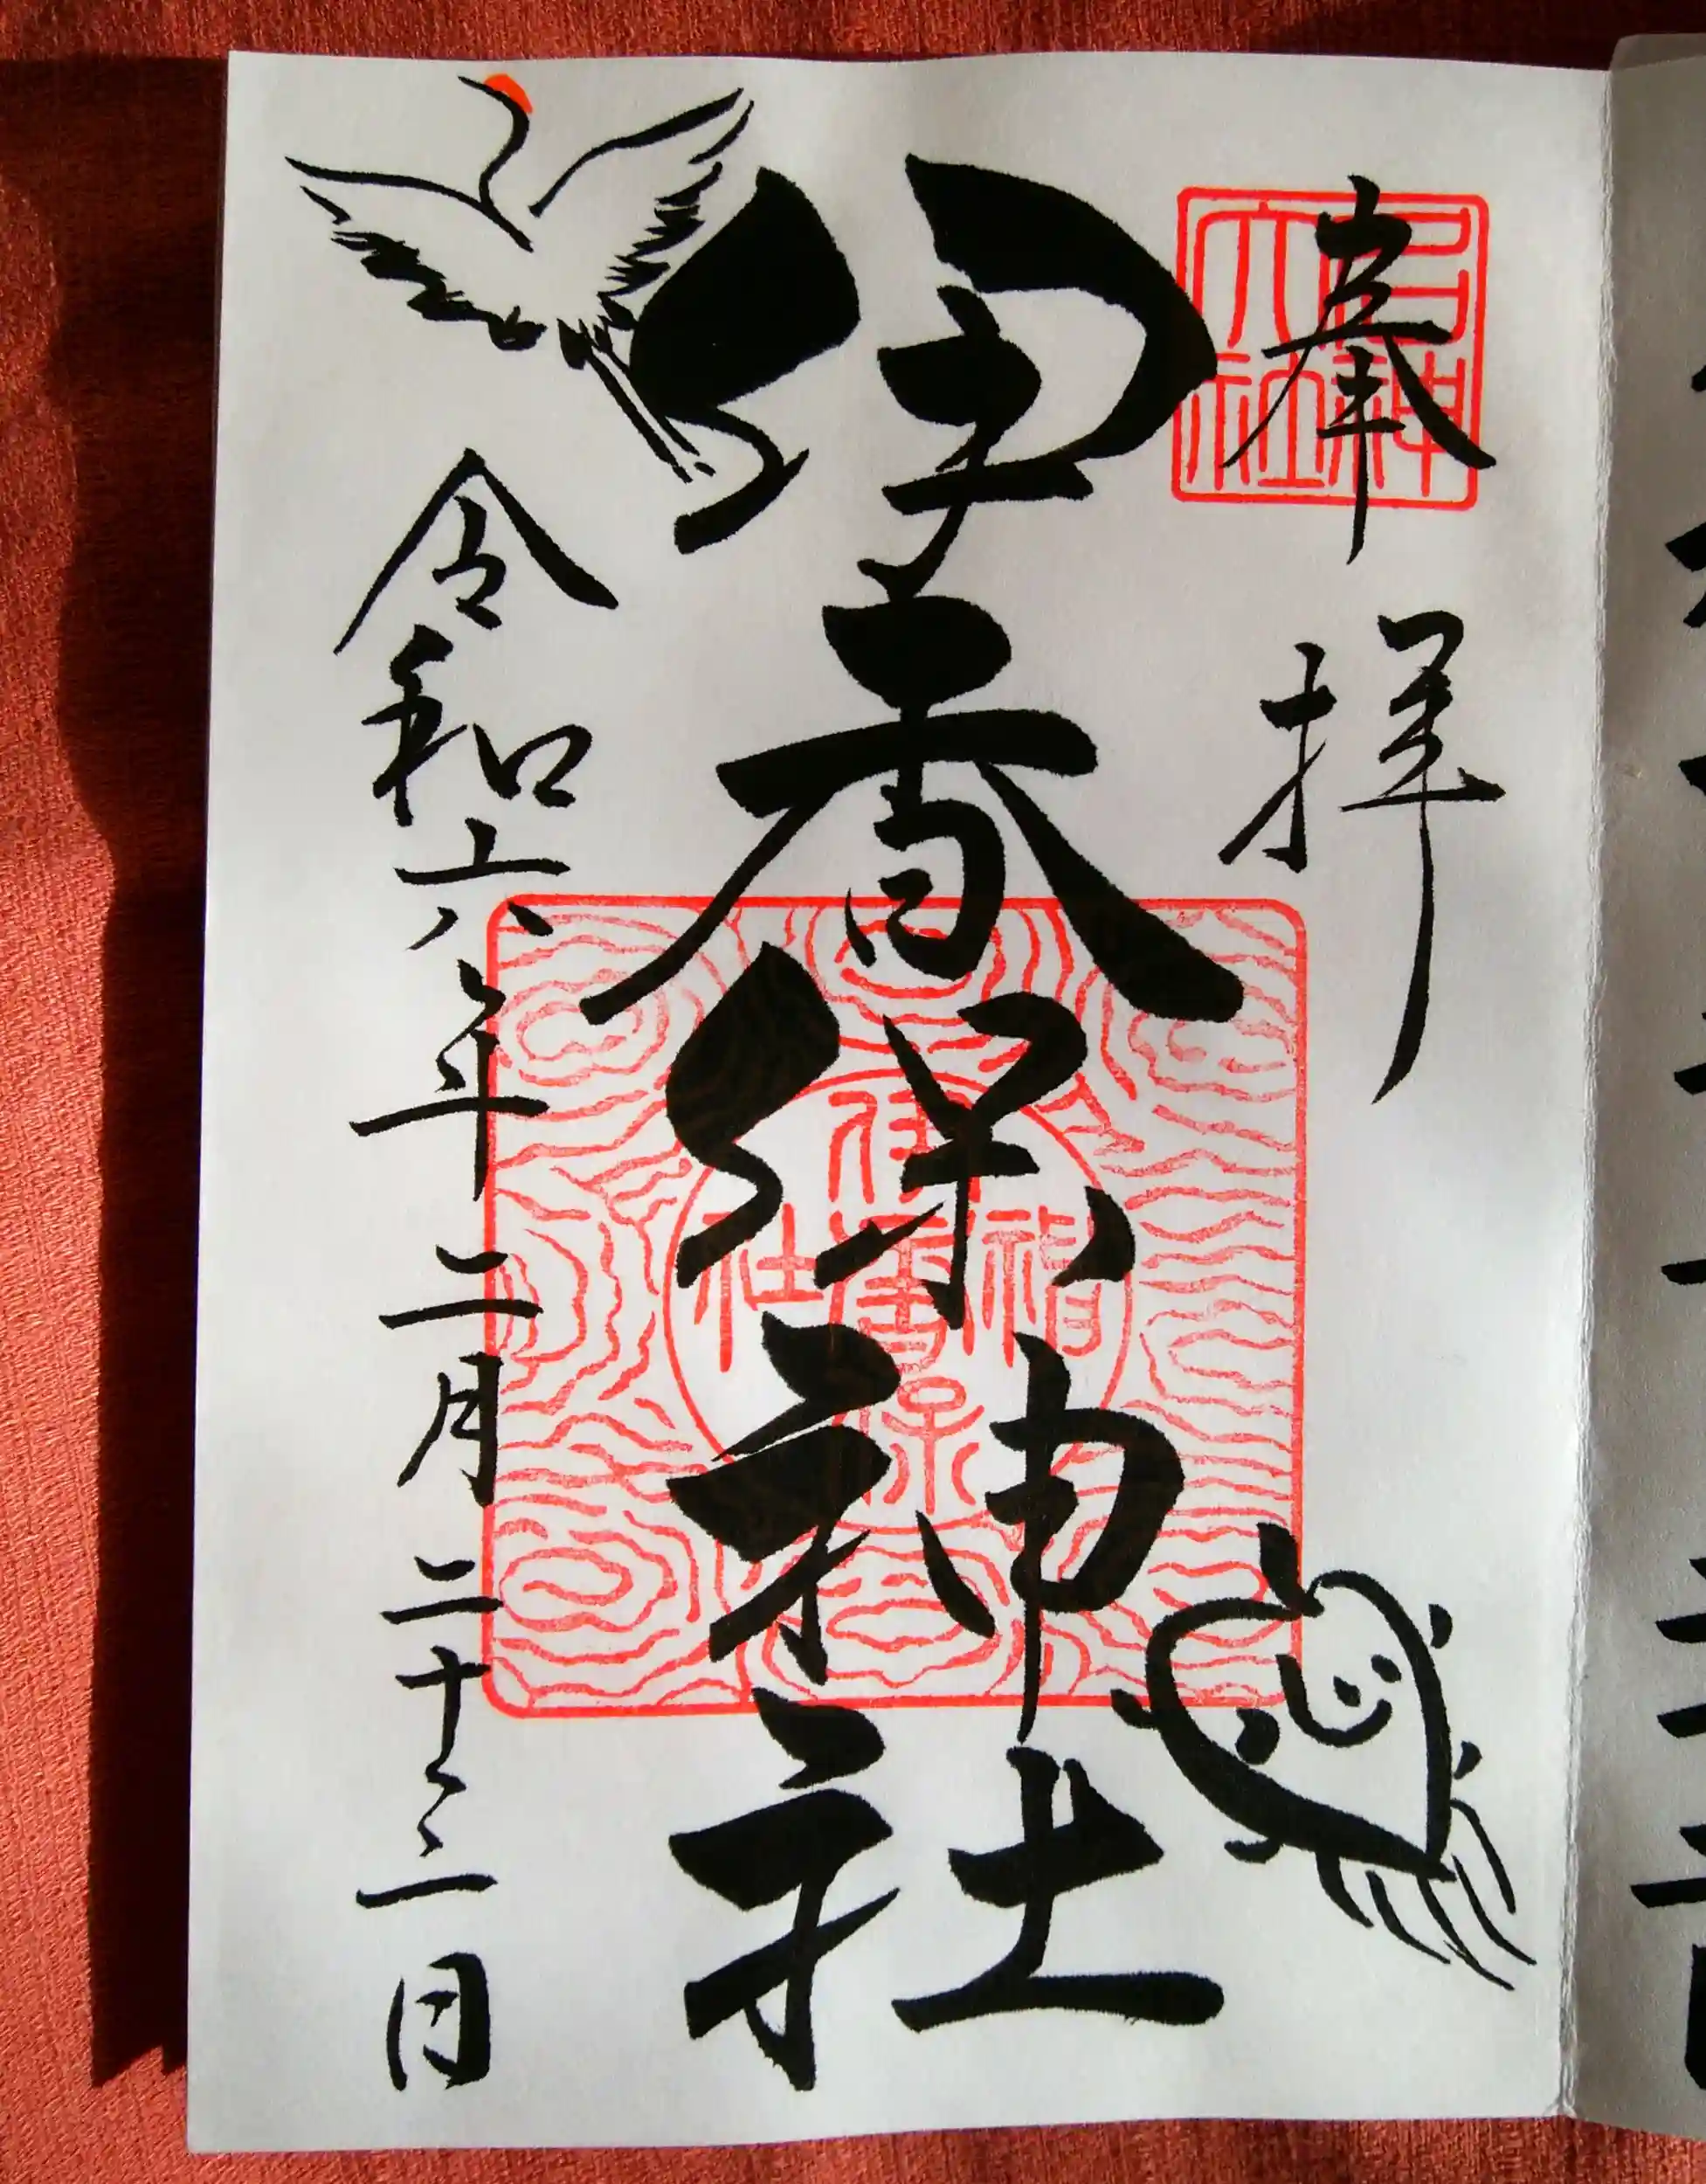 奉拝
伊香保神社
令和六年二月二十三日
名神
大社
伊香保
神社